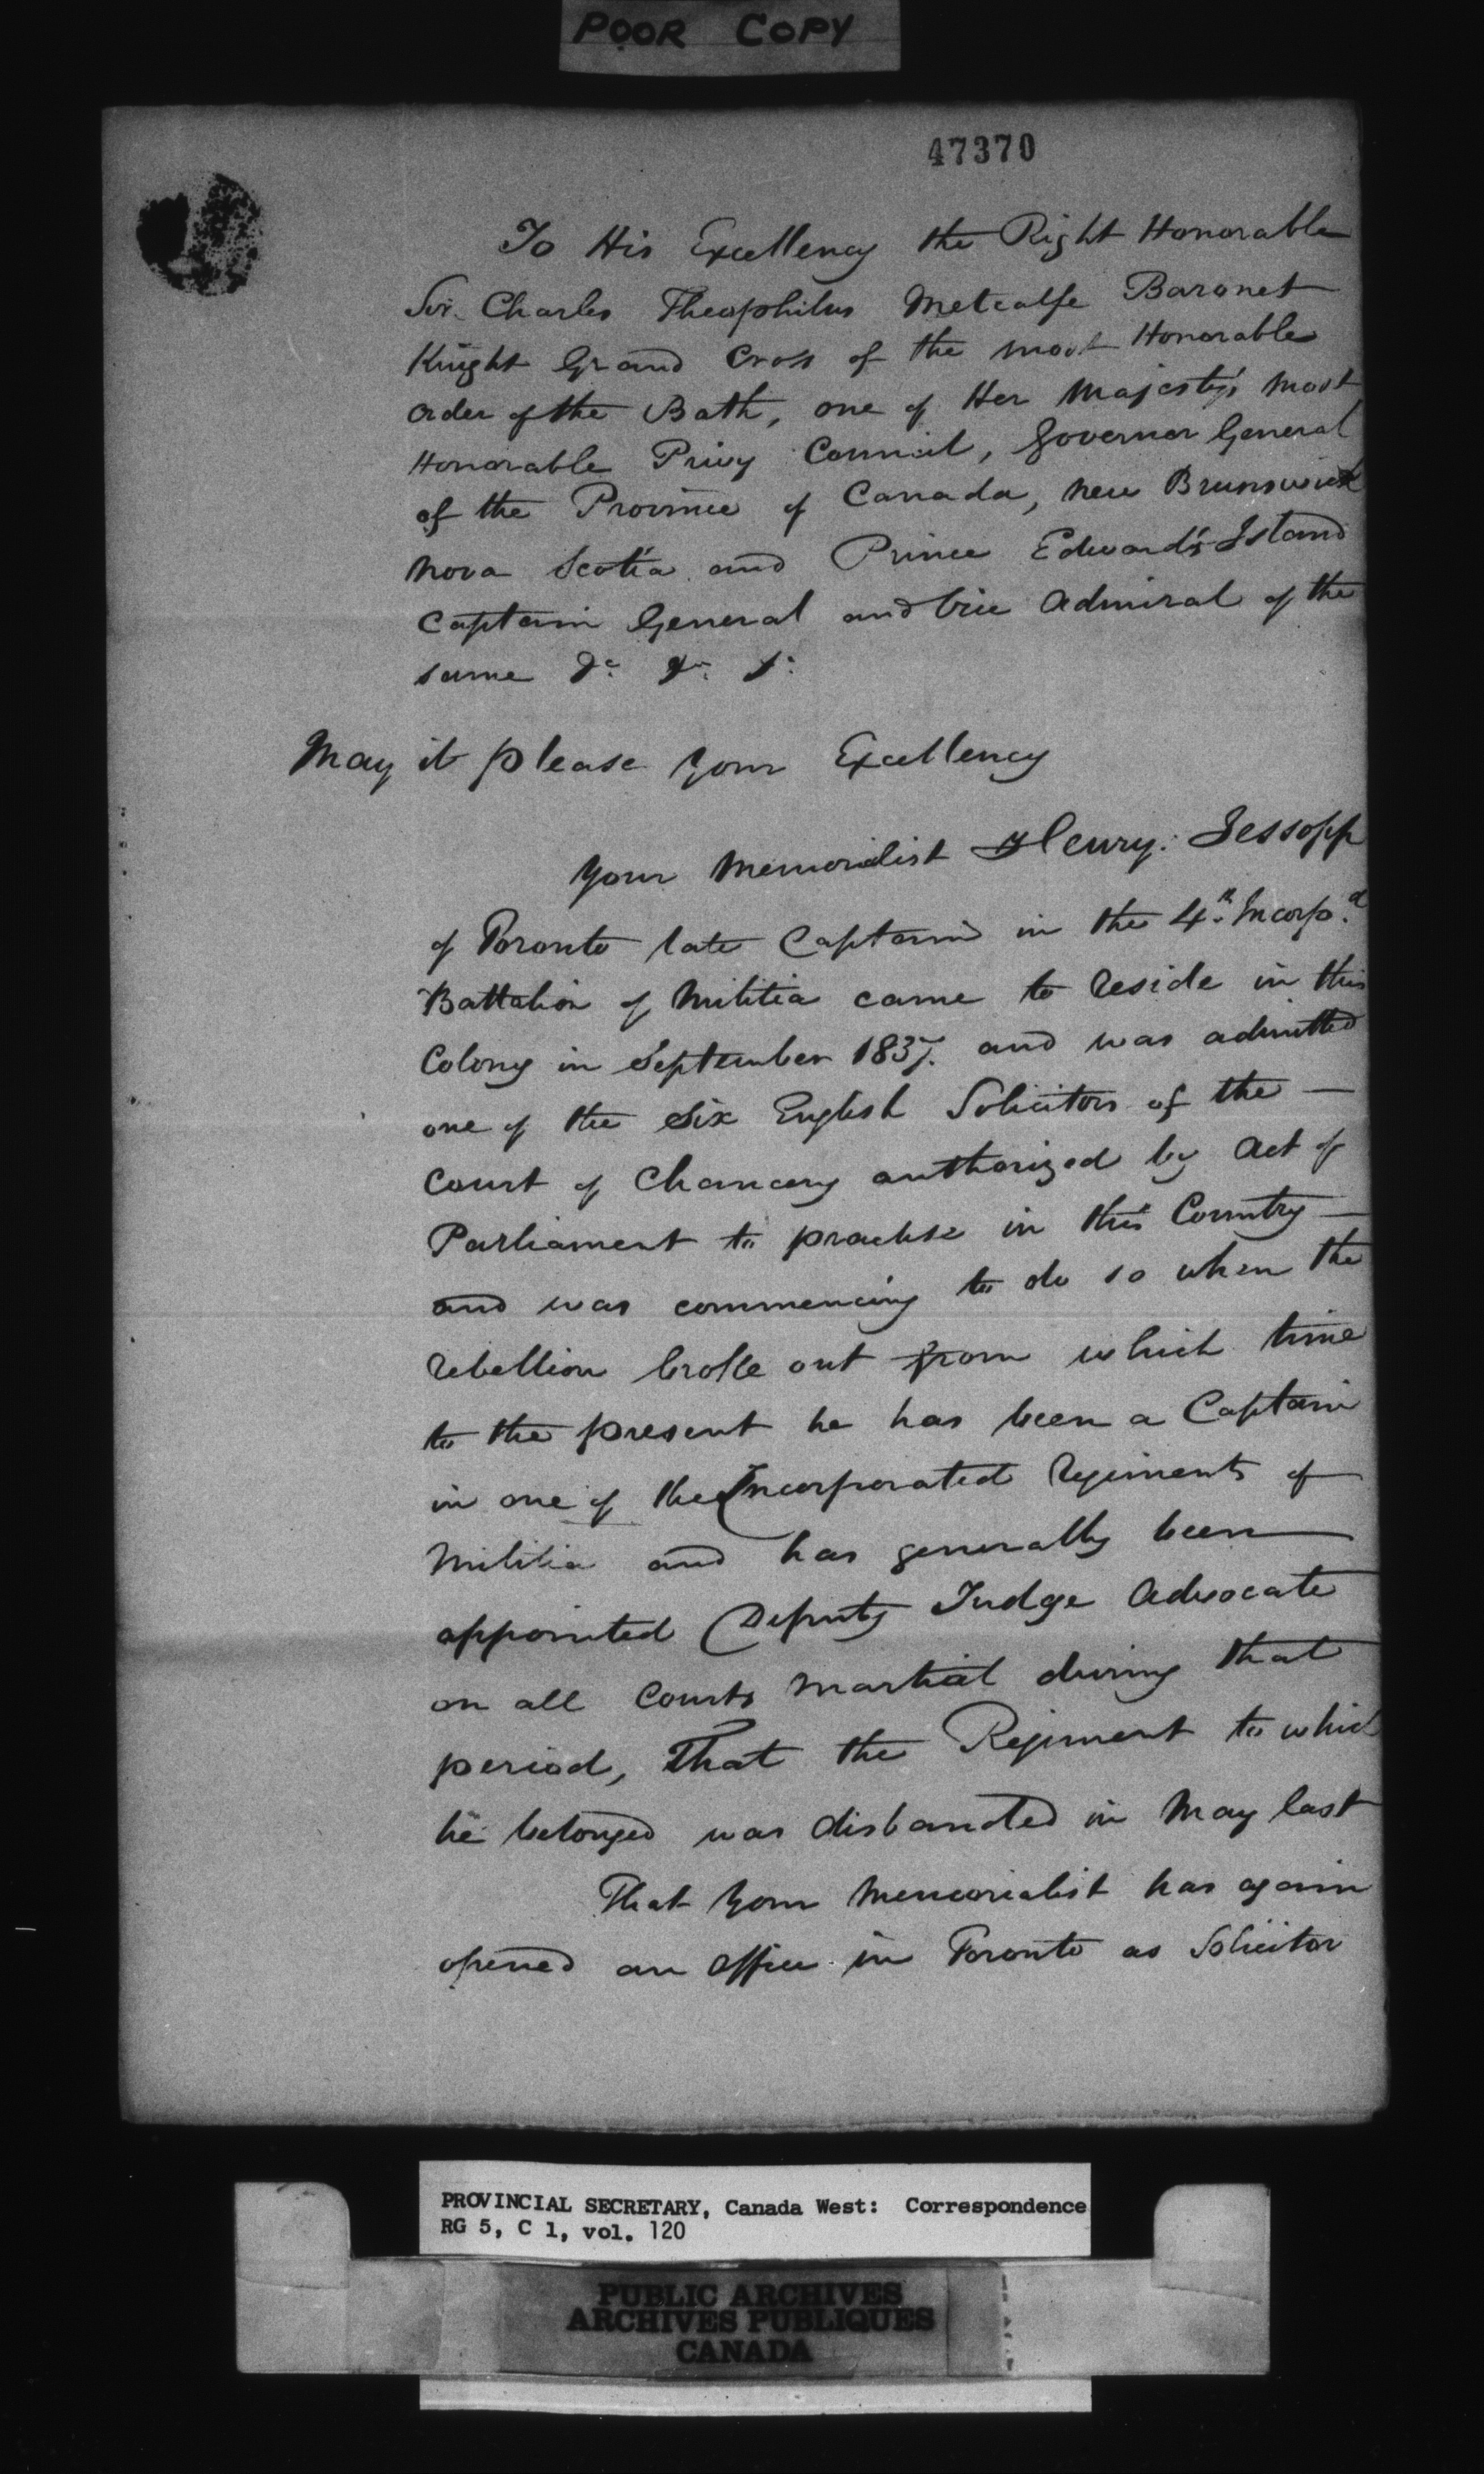 POOR COPY
47370
To His Excellency the Right Honorable
Sir Charles Theophilus Metcalfe Baronet
Knight Grand Cross of the most Honorable
order of the Bath, one of Her Majesty's most
Honorable Privy Council, Governor General
of the Province of Canada, New Brunswick
Nova Scotia and Prince Edward's Island
Captain General and Vice Admiral of the
same &c &c &c
May it please your Excellency
Your Memorialist Henry Jessopp
of Toronto late Captain in the 4th Incorpd
Battalion of Militia came to reside in this
Colony in September 1837. and was admitted
one of the Six English Solicitors of the —
Court of Chancery authorized by Act of
Parliament to practise in this Country —
and was commencing to do so when the
rebellion broke out from which time
to the present he has been a Captain
in one of the Incorporated Regiments of
Militia and has generally been
appointed Deputy Judge Advocate
on all Courts Martial during that
period, That the Regiment to which
he belonged was disbanded in May last
That your Memorialist has again
opened an office in Toronto as Solicitor
PROVINCIAL SECRETARY, Canada West: Correspondence
RG 5, C 1, vol. 120
PUBLIC ARCHIVES
ARCHIVES PUBLIQUES
CANADA